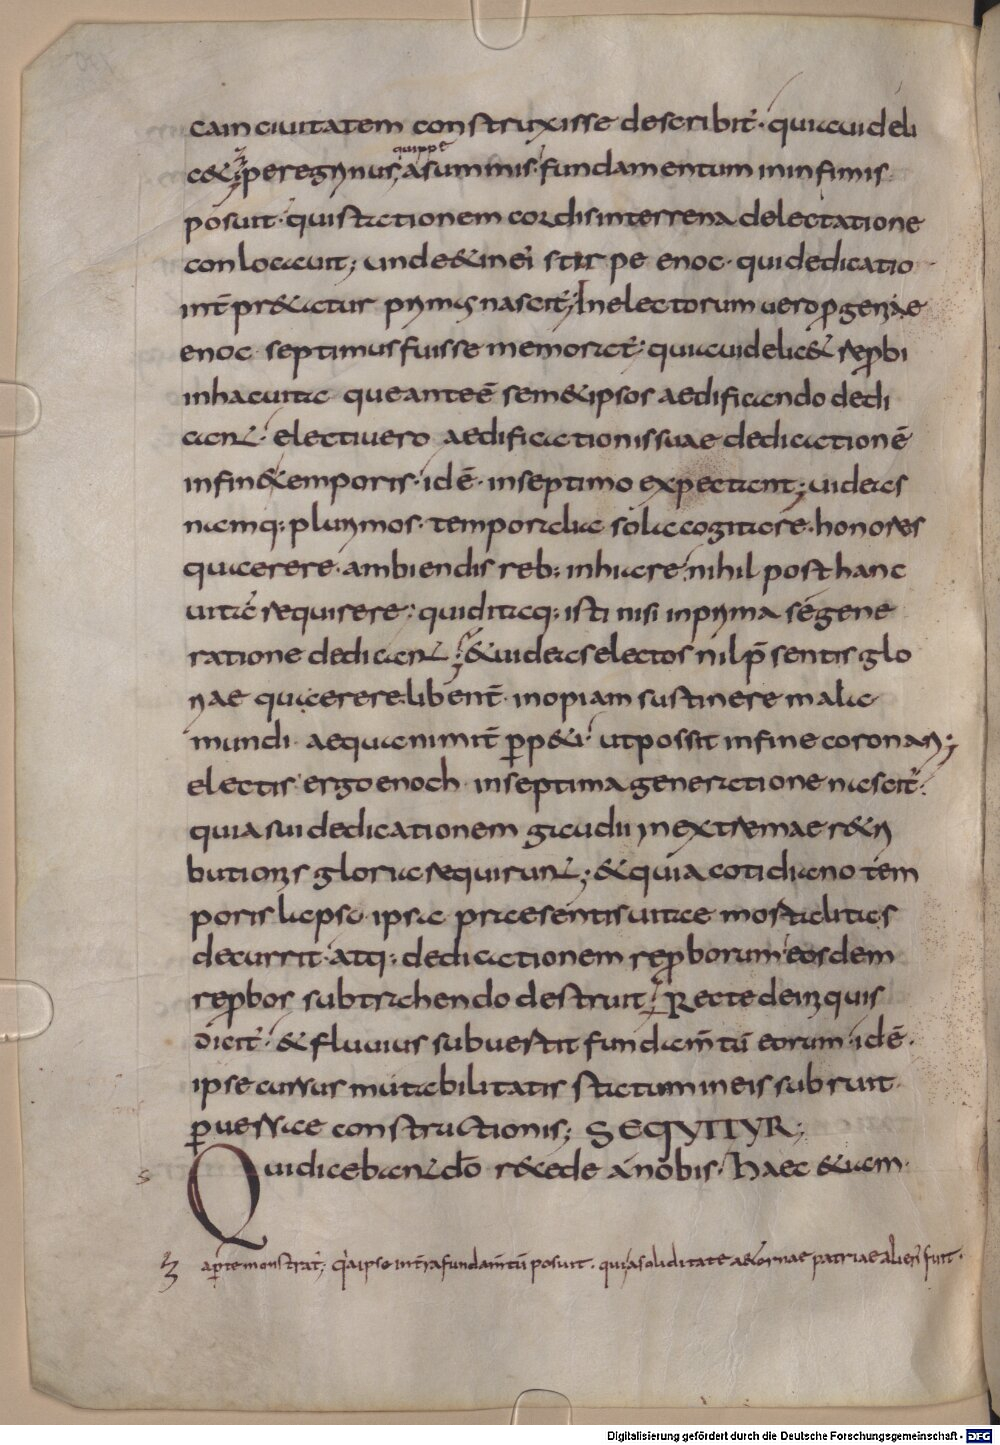 cain ciuitatem construxisse describit᷑· quia uideli
c& peregrinus quippe a summis· fundamentum in infimis
posuit· qui stationem cordis in terrena delectatione
conlocauit; unde & in ei᷑ stirpe enoc· qui dedicatio
int̄ pr&atur primus nascit᷑; In electorum uero ꝓgeniae
enoc septimus fuisse memorat᷑; quia uidelic& reꝓbi
in hac uita que ante ē sem&ipsos aedificando dedi
cant᷑· electi uero aedificationis suae dedicationē
in fine temporis· idē· in septimo expectant; uideas
namq; plurimos· temporalia sola cogitare· honores
quaerere· ambiendis reb; inhiare· nihil post hanc
uitā requirere; quid itaq; isti nisi in prima se gene
ratione dedicant᷑; & uideas electos nil p̄sentis glo
riae quaerere· libent̄ inopiam sustinere mala
mundi aequanimit̄ ꝑp&i· ut possit in fine coronari;
electis ergo enoch in septima generatione nascit᷑·
quia sui dedicationem gaudii in extremae r&ri
butionis gloria requirunt᷑; & quia cotidiano tem
poris lapso ipsa praesentis uitae mortalitas
decurrit atq; dedicationem reꝓborum eosdem
reꝓbos subtrahendo destruit; Recte de iniquis
dicit᷑· & fluuius subuertit fundam̄tū eorum· idē·
ipse cursus mutabilitatis statum in eis subruit
ꝑuersae constructionis; SEQUITUR;
Qui dicebant dō recede a nobis· haec &iam·
s
aꝑte monstrat᷑; q̄a ipse int̄ra fundam̄tū posuit· qui a soliditate a&ernae patriae alien᷑ fuit·
Digitalisierung gefördert durch die Deutsche Forschungsgemeinschaft - DFG